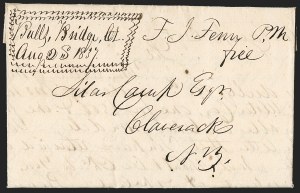 Bulls Bridge, Ct.
Aug 23 1837
F J Fenn P.M
free
Silas Camp Esqr
Claverack
N.Y.